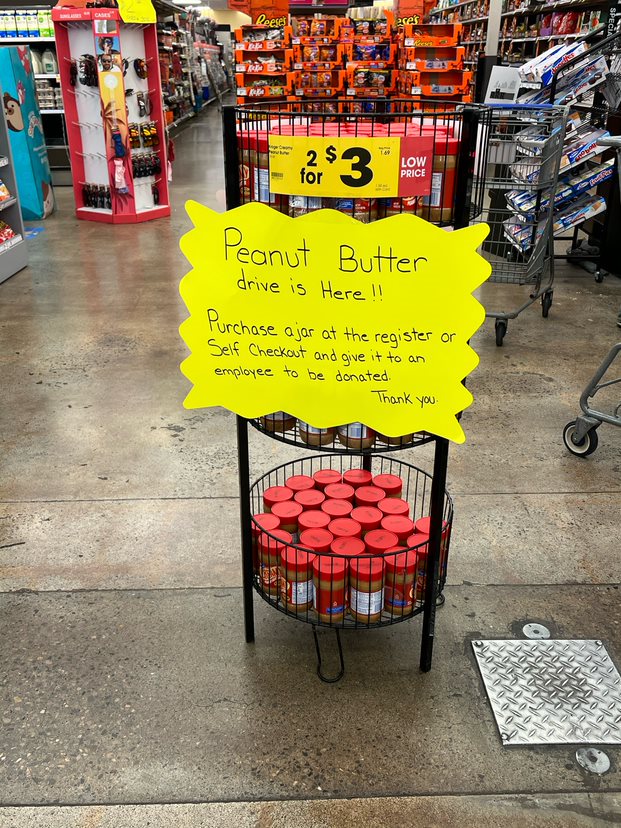 SUNGLASSES
CASES
Reese's
Reese's
KitKat
KitKat
Kroger Creamy
Peanut Butter
2 for $3
1.69
LOW
PRICE
Peanut Butter
drive is Here!!
Purchase a jar at the register or
Self Checkout and give it to an
employee to be donated.
Thank you.